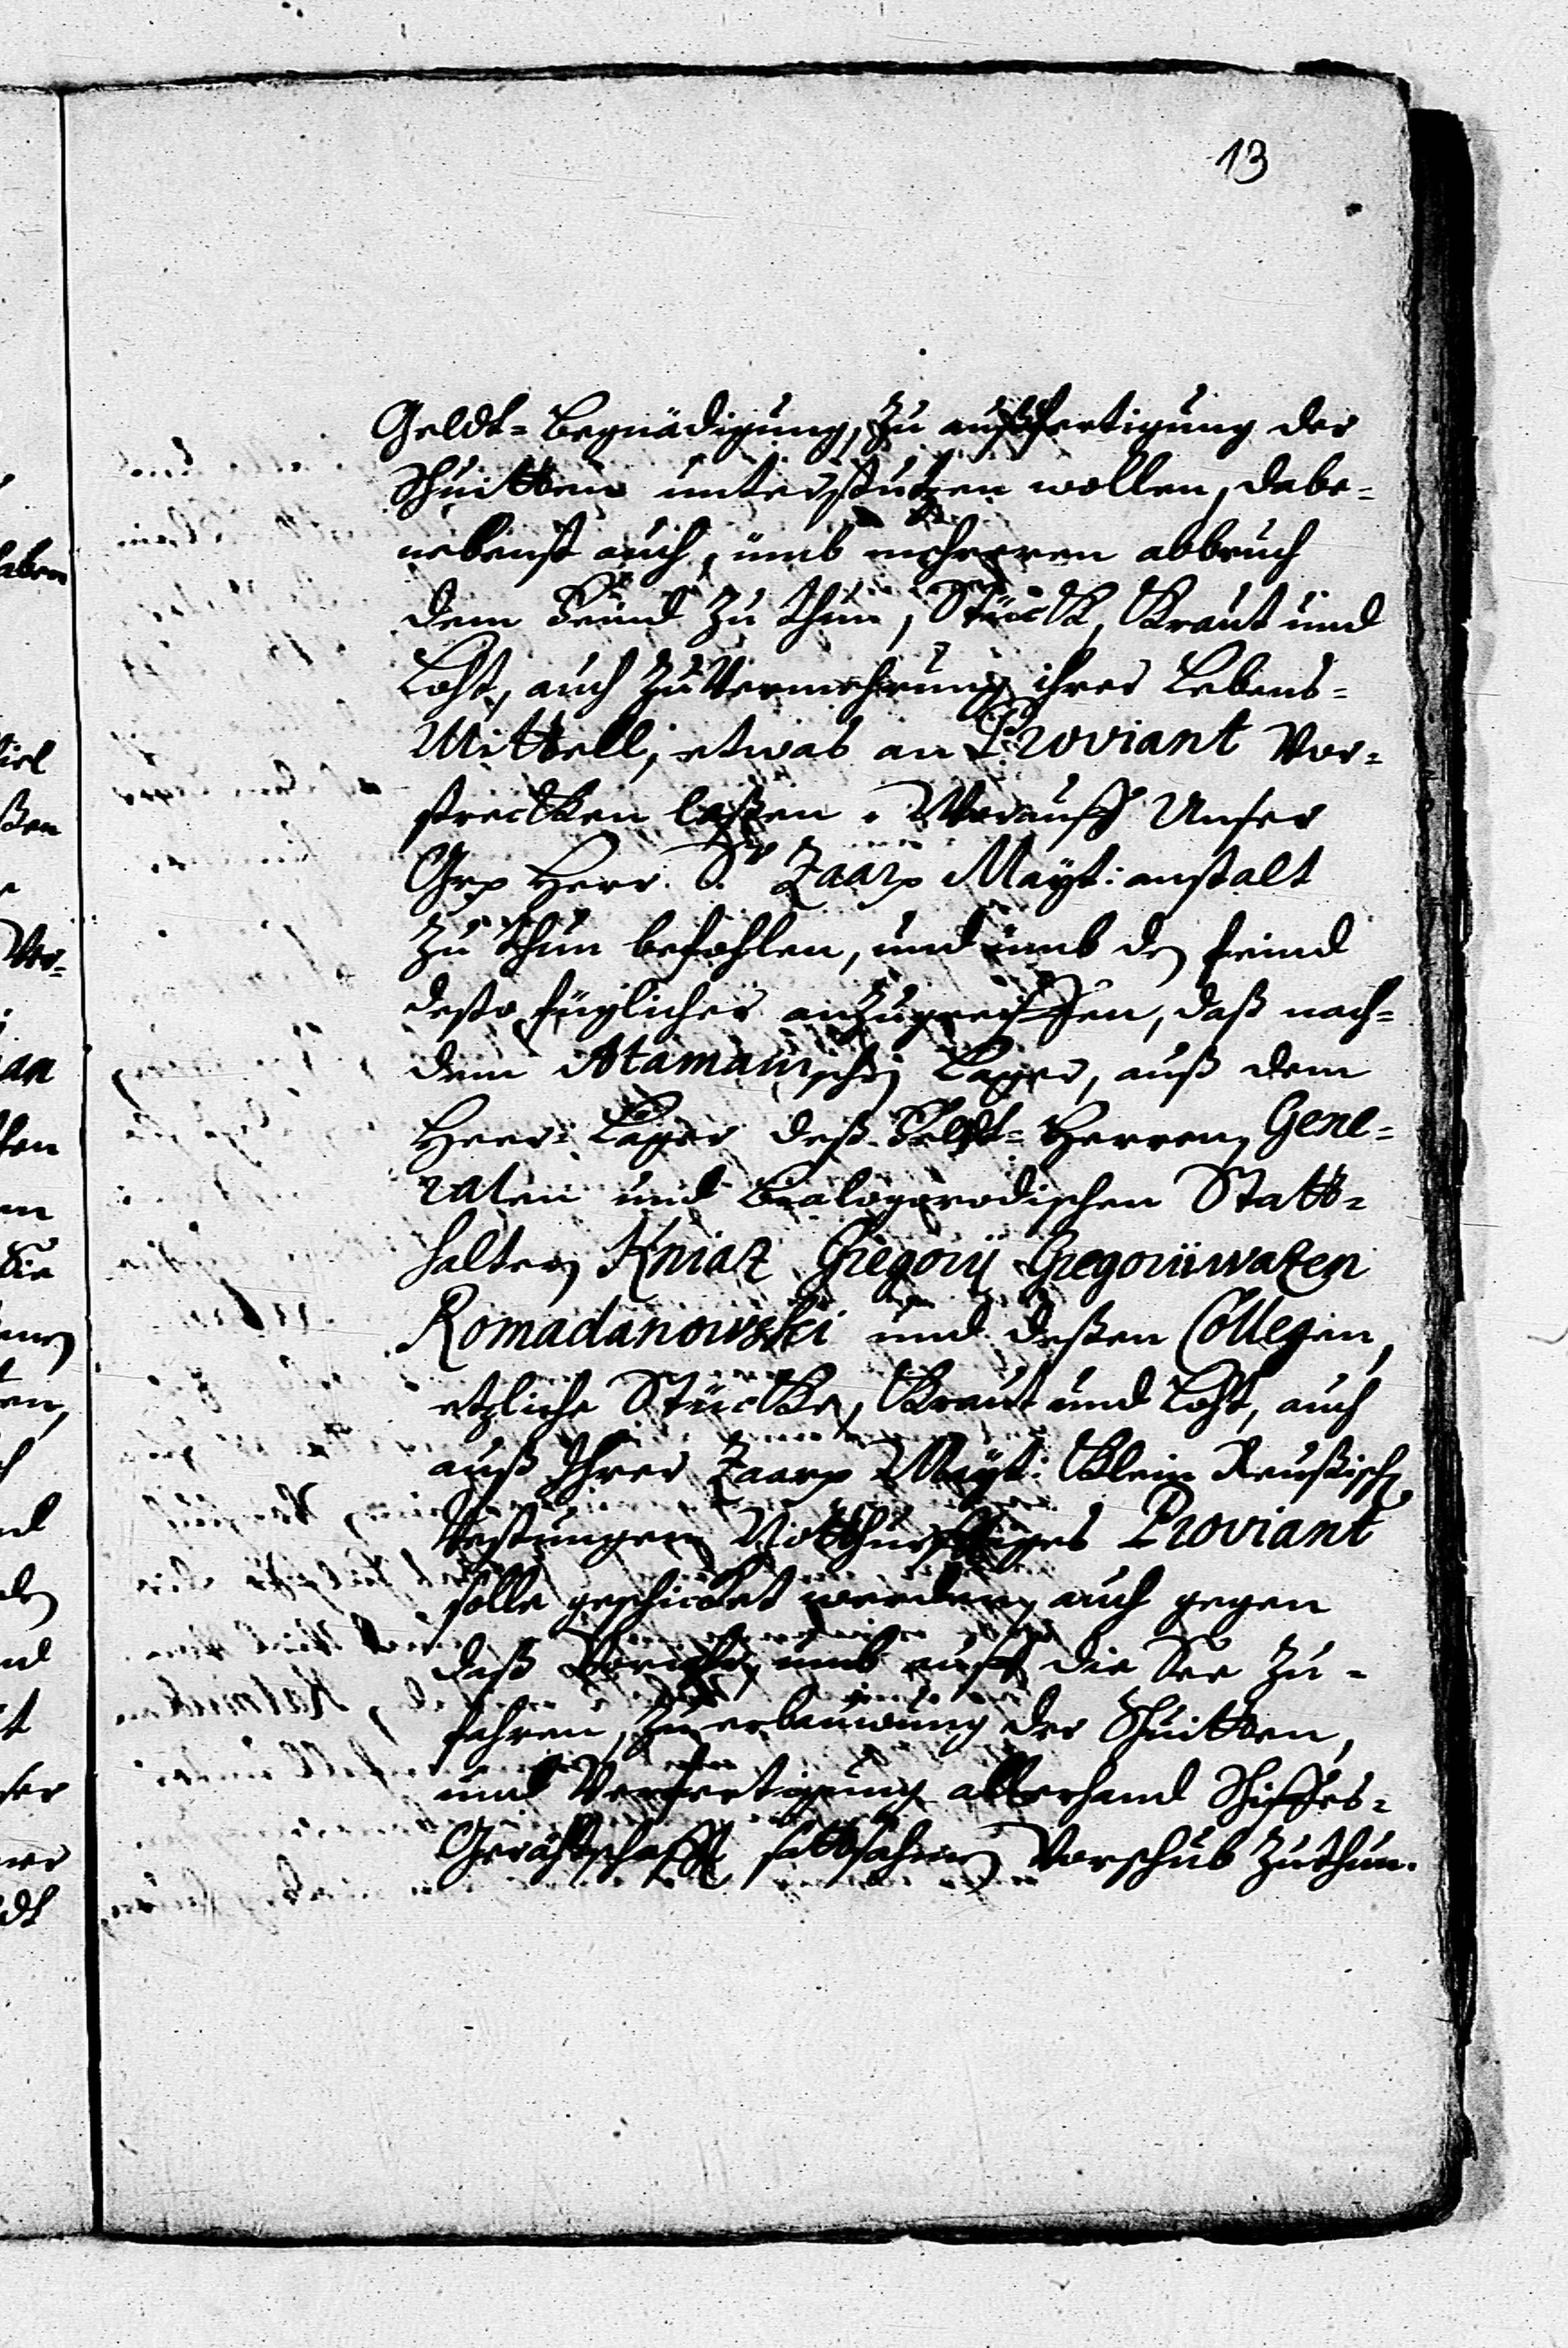 13
Geldt=Begnädigung, zu außfertigung der
Schuitten unterstützen wollen, dabe=
nebenst auch, ümb mehreren abbruch
dem Feind zu thun, Stück, Kraut und
Loht, auch zu Vermehrung ihres Lebens=
Mittell, etwas an Proviant Vor=
streckken laßen. Worauff Unser
Grß Herr. Sr Zaarn Mayt: anstalt
zu thun befohlen, und ümb den feind
desto füglicher anzugreiffen, daß nach=
dem Atamanischen Lager, auß dem
Heer=Lager deß Feldt=Herren, Gene=
ralen und Bialogorodischen Statt=
halters Kniaz Gregorij Gregoriiwazen
Romadanowski und deßen Collegen,
etzliche Stückke, Kraut und Loht, auch
auß Ihrer Zaarn Mayt: Klein Reußischen
Vestungen Notthürfftiges Proviant
solle geschicket werden, auch gegen
daß umb auff die See zu=
fahren, zu erbauwung der Schuitten,
und Verfertigung allerhand Schiffes=
Gerähtschafft sattsahmen Vorschub zuthun.